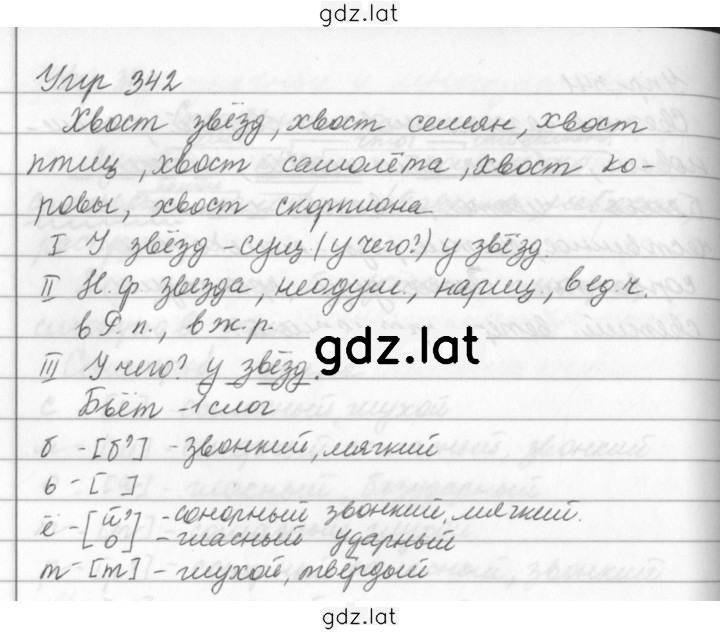 gdz.lat
Упр 342
Хвост звёзд, хвост семян, хвост
птиц, хвост самолёта, хвост ко-
ровы, хвост скорпиона
I У звёзд - сущ (у чего?) у звёзд.
II Н.ф. звезда, неодуш., нариц, в ед.ч.
в Р.п., в ж.р.
III У чего? у звёзд.
gdz.lat
Бьёт - 1 слог
б - [б'] - звонкий, мягкий
ь - [ ]
ё - [й' - сонорный звонкий, мягкий.
о] - гласный ударный
т - [т] - глухой, твёрдый
gdz.lat